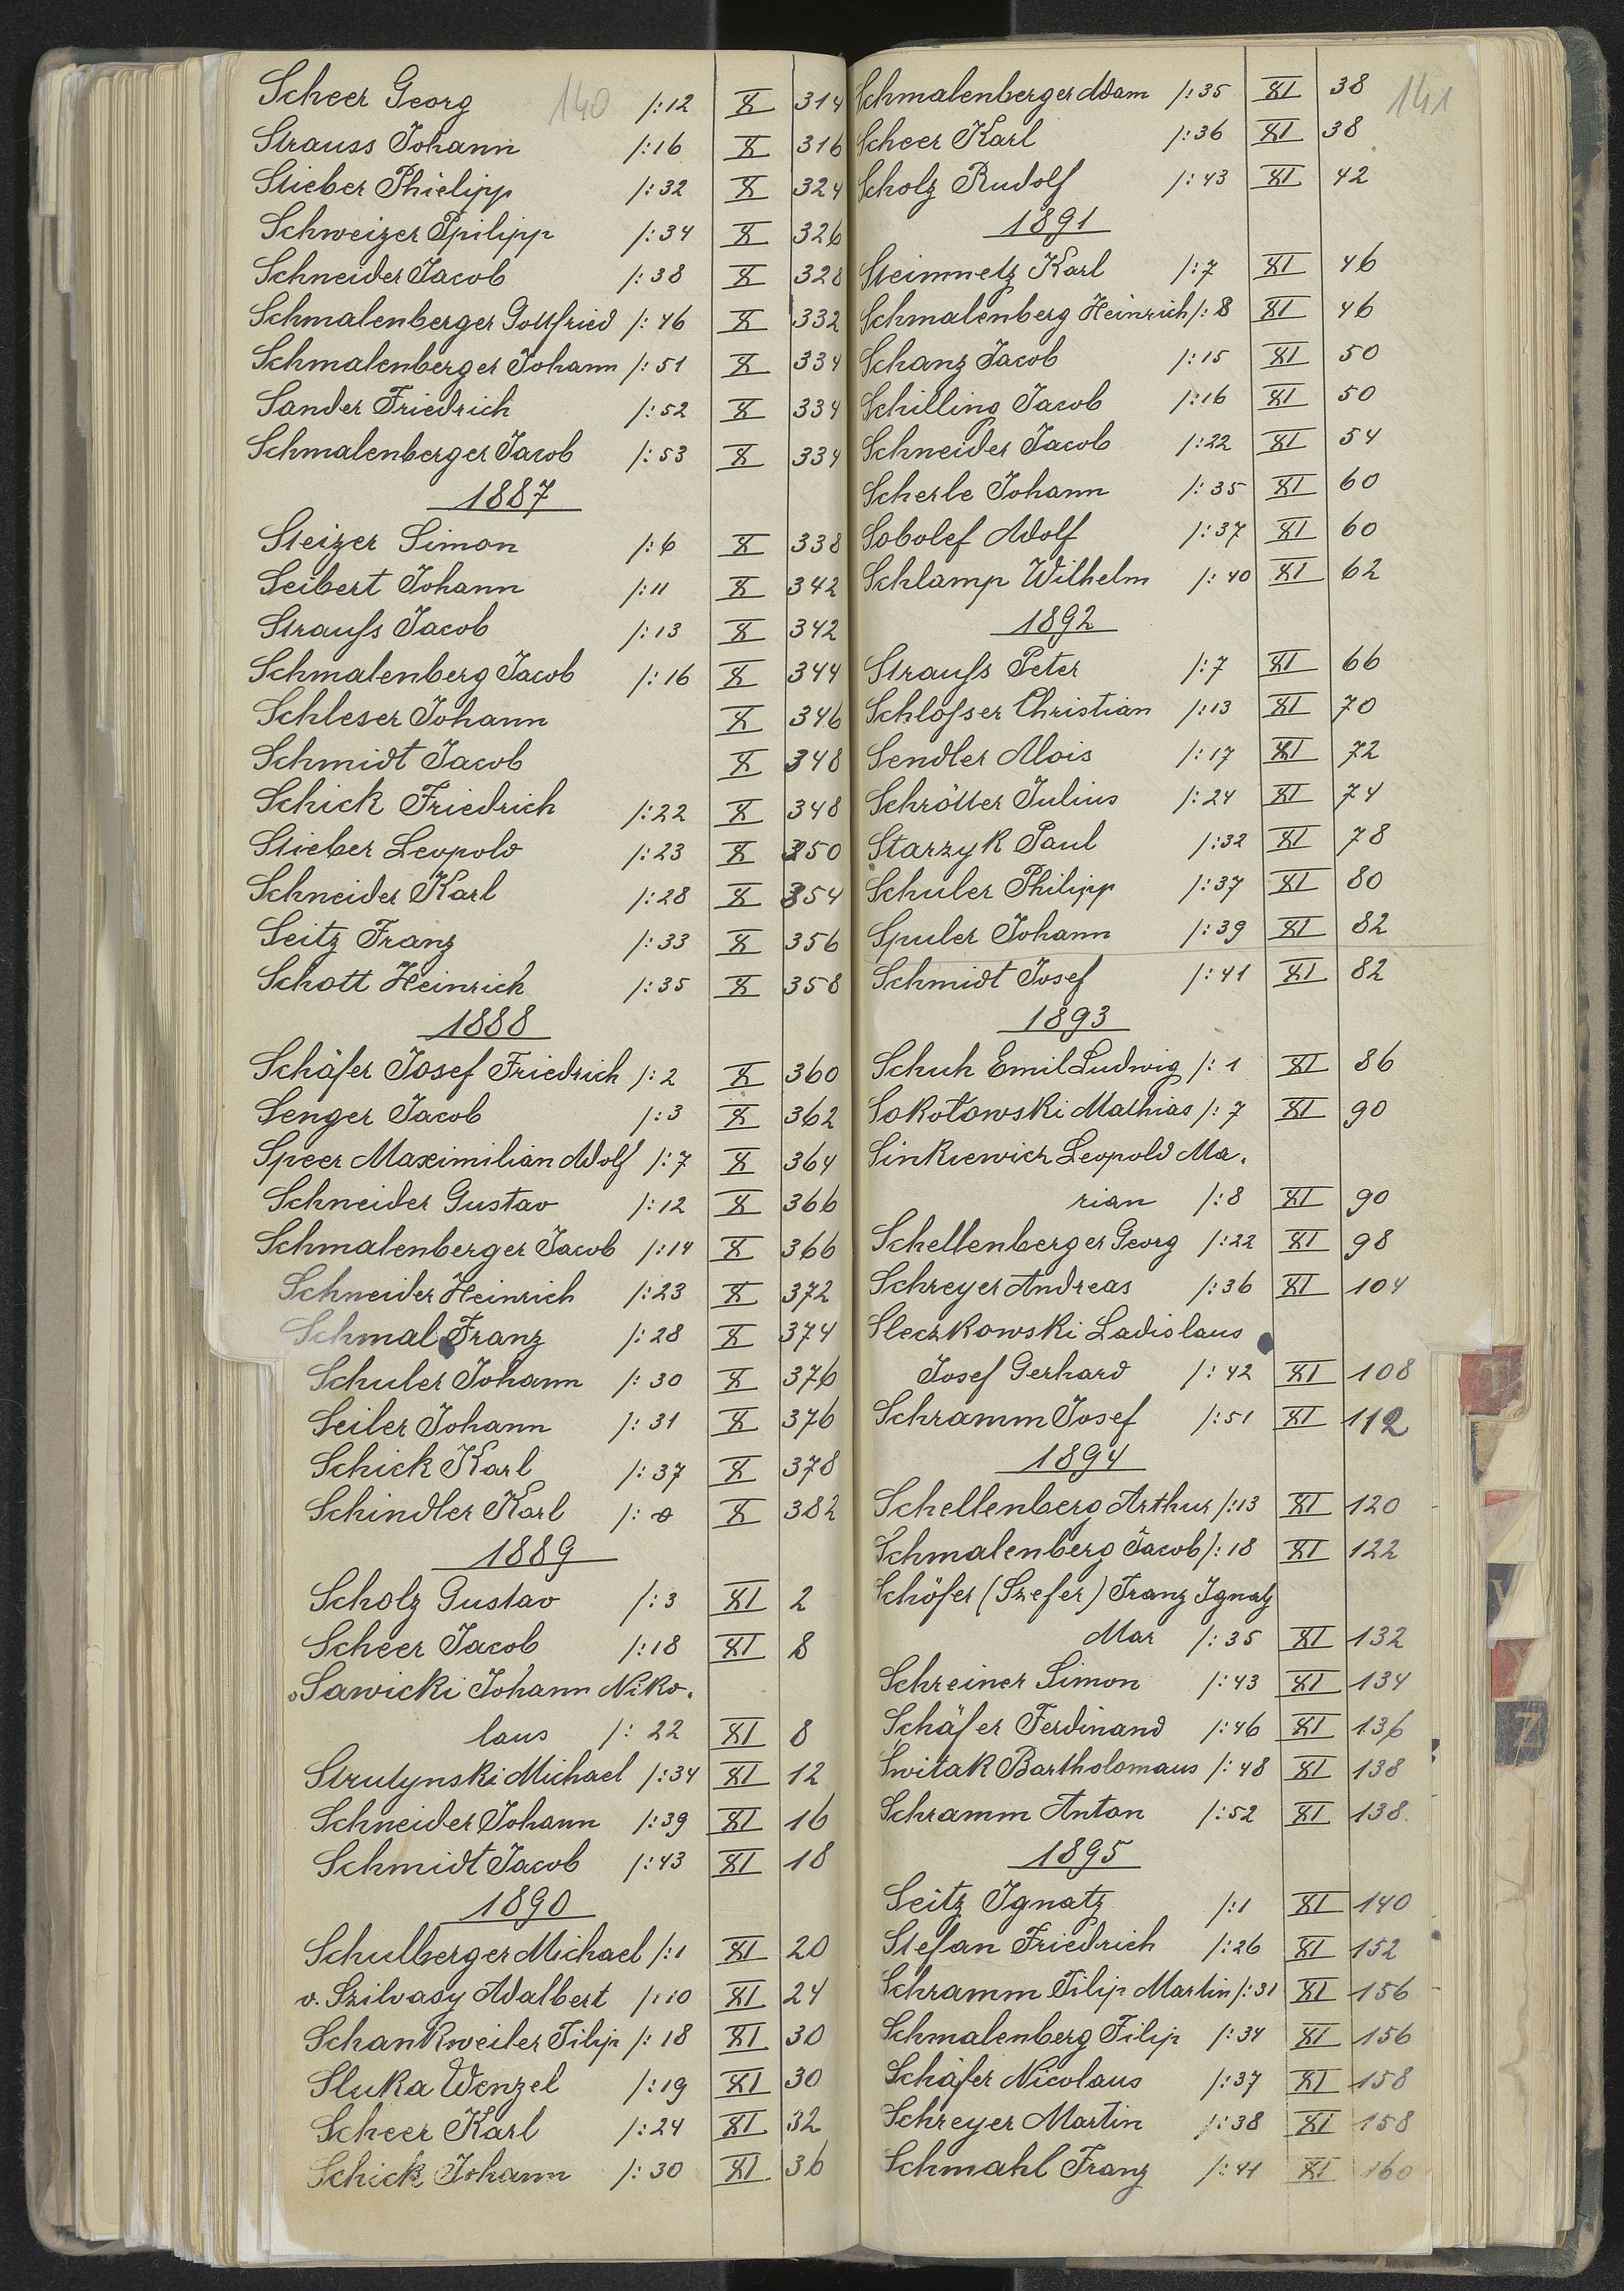 140
Scheer Georg /:12 X 314
Strauss Johann /:16 X 316
Stieber Phielipp /:32 X 324
Schweizer Ppilipp /:34 X 326
Schneider Jacob /:38 X 328
Schmalenberger Gottfried /:46 X 332
Schmalenberger Johann /:51 X 334
Sander Friedrich /:52 X 334
Schmalenberger Jacob /:53 X 334
1887
Steizer Simon /:6 X 338
Seibert Johann /:11 X 342
Strauſs Jacob /:13 X 342
Schmalenberg Jacob /:16 X 344
Schleser Johann X 346
Schmidt Jacob X 348
Schick Friedrich /:22 X 348
Stieber Leopold /:23 X 350
Schneider Karl /:28 X 354
Seitz Franz /:33 X 356
Schott Heinrich /:35 X 358
1888
Schäfer Josef Friedrich /:2 X 360
Senger Jacob /:3 X 362
Speer Maximilian Adolf /:7 X 364
Schneider Gustav /:12 X 366
Schmalenberger Jacob /:14 X 366
Schneider Heinrich /:23 X 372
Schmal Franz /:28 X 374
Schuler Johann /:30 X 376
Seiler Johann /:31 X 376
Schick Karl /:37 X 378
Schindler Karl /: X 382
1889
Scholz Gustav /:3 XI 2
Scheer Jacob /:18 XI 8
Sawicki Johann Niko-
laus /:22 XI 8
Strutynski Michael /:34 XI 12
Schneider Johann /:39 XI 16
Schmidt Jacob /:43 XI 18
1890
Schulberger Michael /:1 XI 20
v. Szilvasy Adalbert /:10 XI 24
Schankweiler Filip /:18 XI 30
Sluka Wenzel /:19 XI 30
Scheer Karl /:24 XI 32
Schick Johann /:30 XI 36
141
Schmalenberger Adam /:35 XI 38
Scheer Karl /:36 XI 38
Scholz Rudolf /:43 XI 42
1891
Steinmetz Karl /:7 XI 46
Schmalenberg Heinrich /:8 XI 46
Schanz Jacob /:15 XI 50
Schilling Jacob /:16 XI 50
Schneider Jacob /:22 XI 54
Scherle Johann /:35 XI 60
Sobolef Adolf /:37 XI 60
Schlamp Wilhelm /:40 XI 62
1892
Strauſs Peter /:7 XI 66
Schloſser Christian /:13 XI 70
Sendler Alois /:17 XI 72
Schrötter Julius /:24 XI 74
Starzyk Paul /:32 XI 78
Schuler Philipp /:37 XI 80
Spuler Johann /:39 XI 82
Schmidt Josef /:41 XI 82
1893
Schuh Emil Ludwig /:1 XI 86
Sokołowski Mathias /:7 XI 90
Sinkiewich Leopold Ma-
rian /:8 XI 90
Schellenberger Georg /:22 XI 98
Schreyer Andreas /:36 XI 104
Sleczkowski Ladislaus
Josef Gerhard /:42 XI 108
Schramm Josef /:51 XI 112
1894
Schellenberg Arthur /:13 XI 120
Schmalenberg Jacob /:18 XI 122
Schöfer (Szefer) Franz Ignatz
Mar /:35 XI 132
Schreiner Simon /:43 XI 134
Schäfer Ferdinand /:46 XI 136
Switak Bartholomaus /:48 XI 138
Schramm Anton /:52 XI 138
1895
Seitz Ignatz /:1 XI 140
Stefan Friedrich /:26 XI 152
Schramm Filip Martin /:31 XI 156
Schmalenberg Filip /:34 XI 156
Schäfer Nicolaus /:37 XI 158
Schreyer Martin /:38 XI 158
Schmahl Franz /:41 XI 160
Z